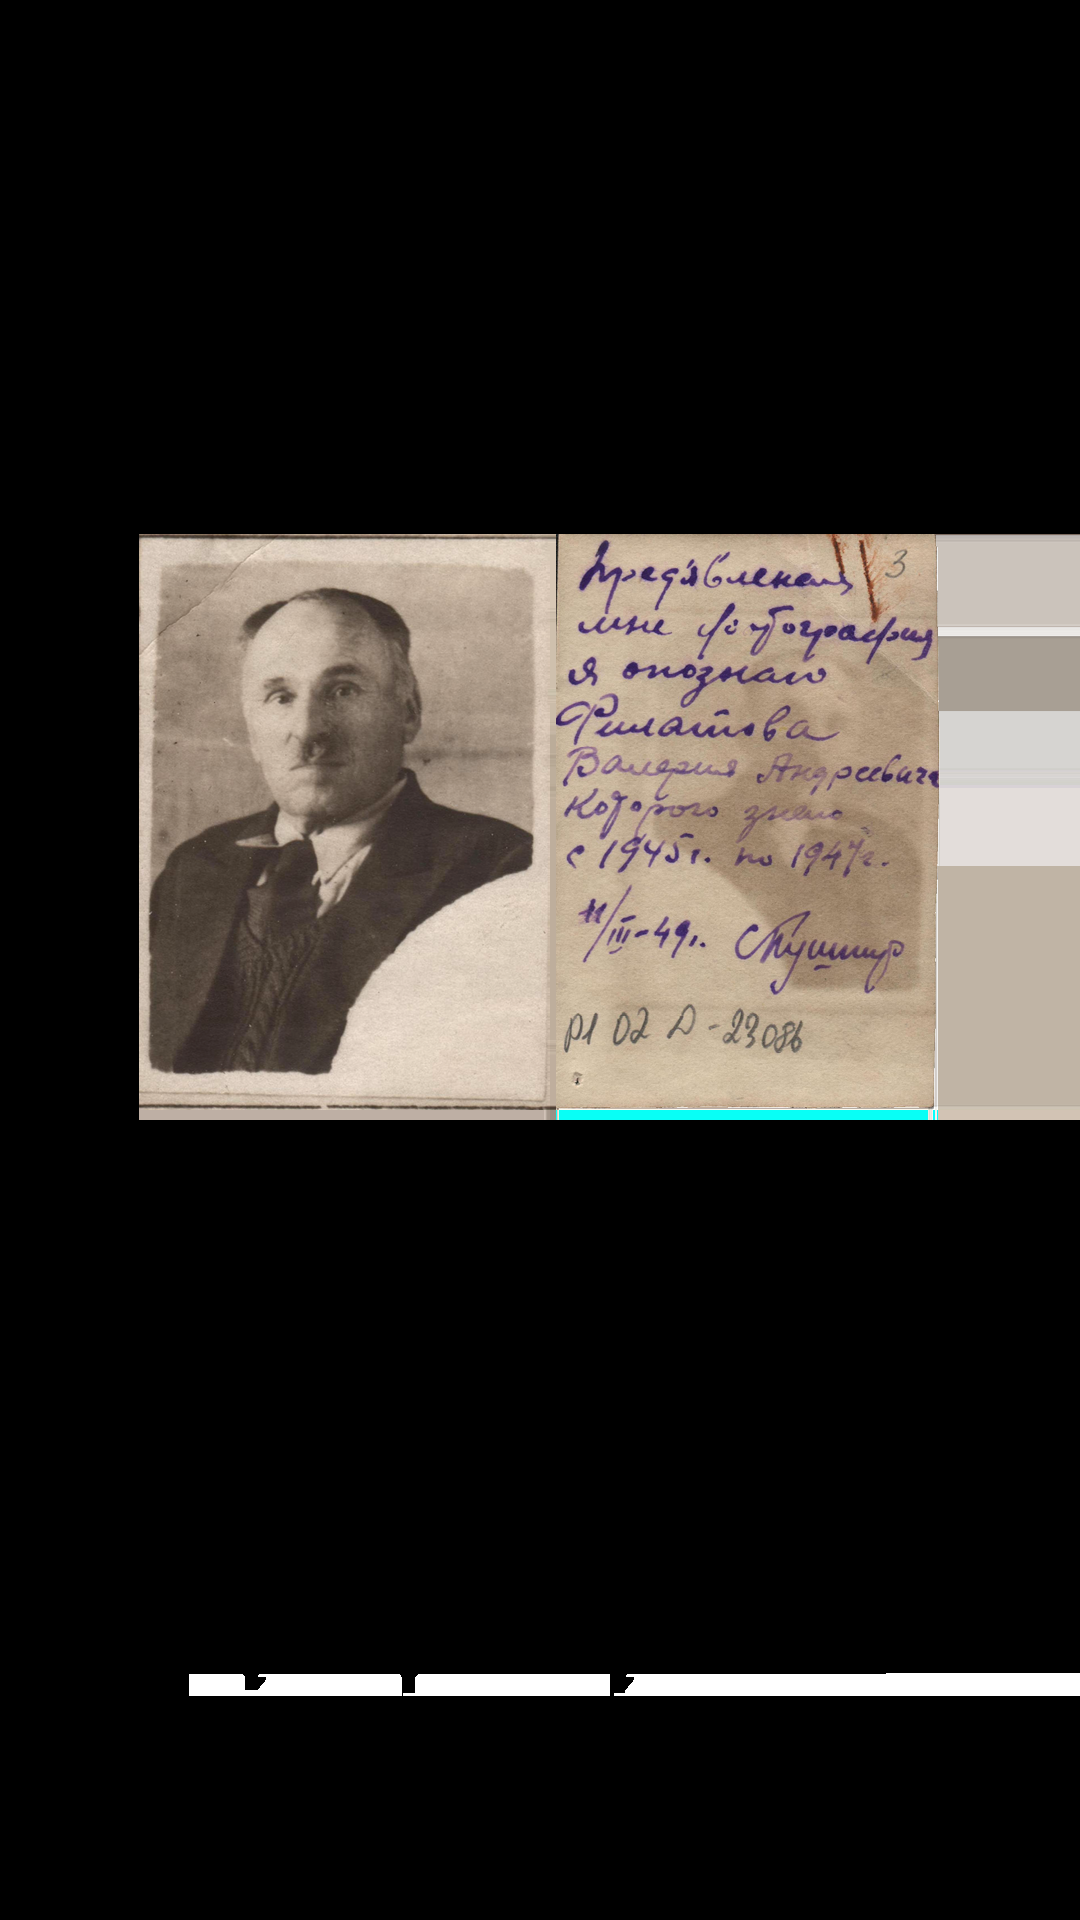 3
Предъявленая
мне фотография
я опознаю
Филатова
Валерия Андреевича
которого знаю
с 1945г. по 1947г.
11/III-49г. СКушнир
P1 02 Д-23086